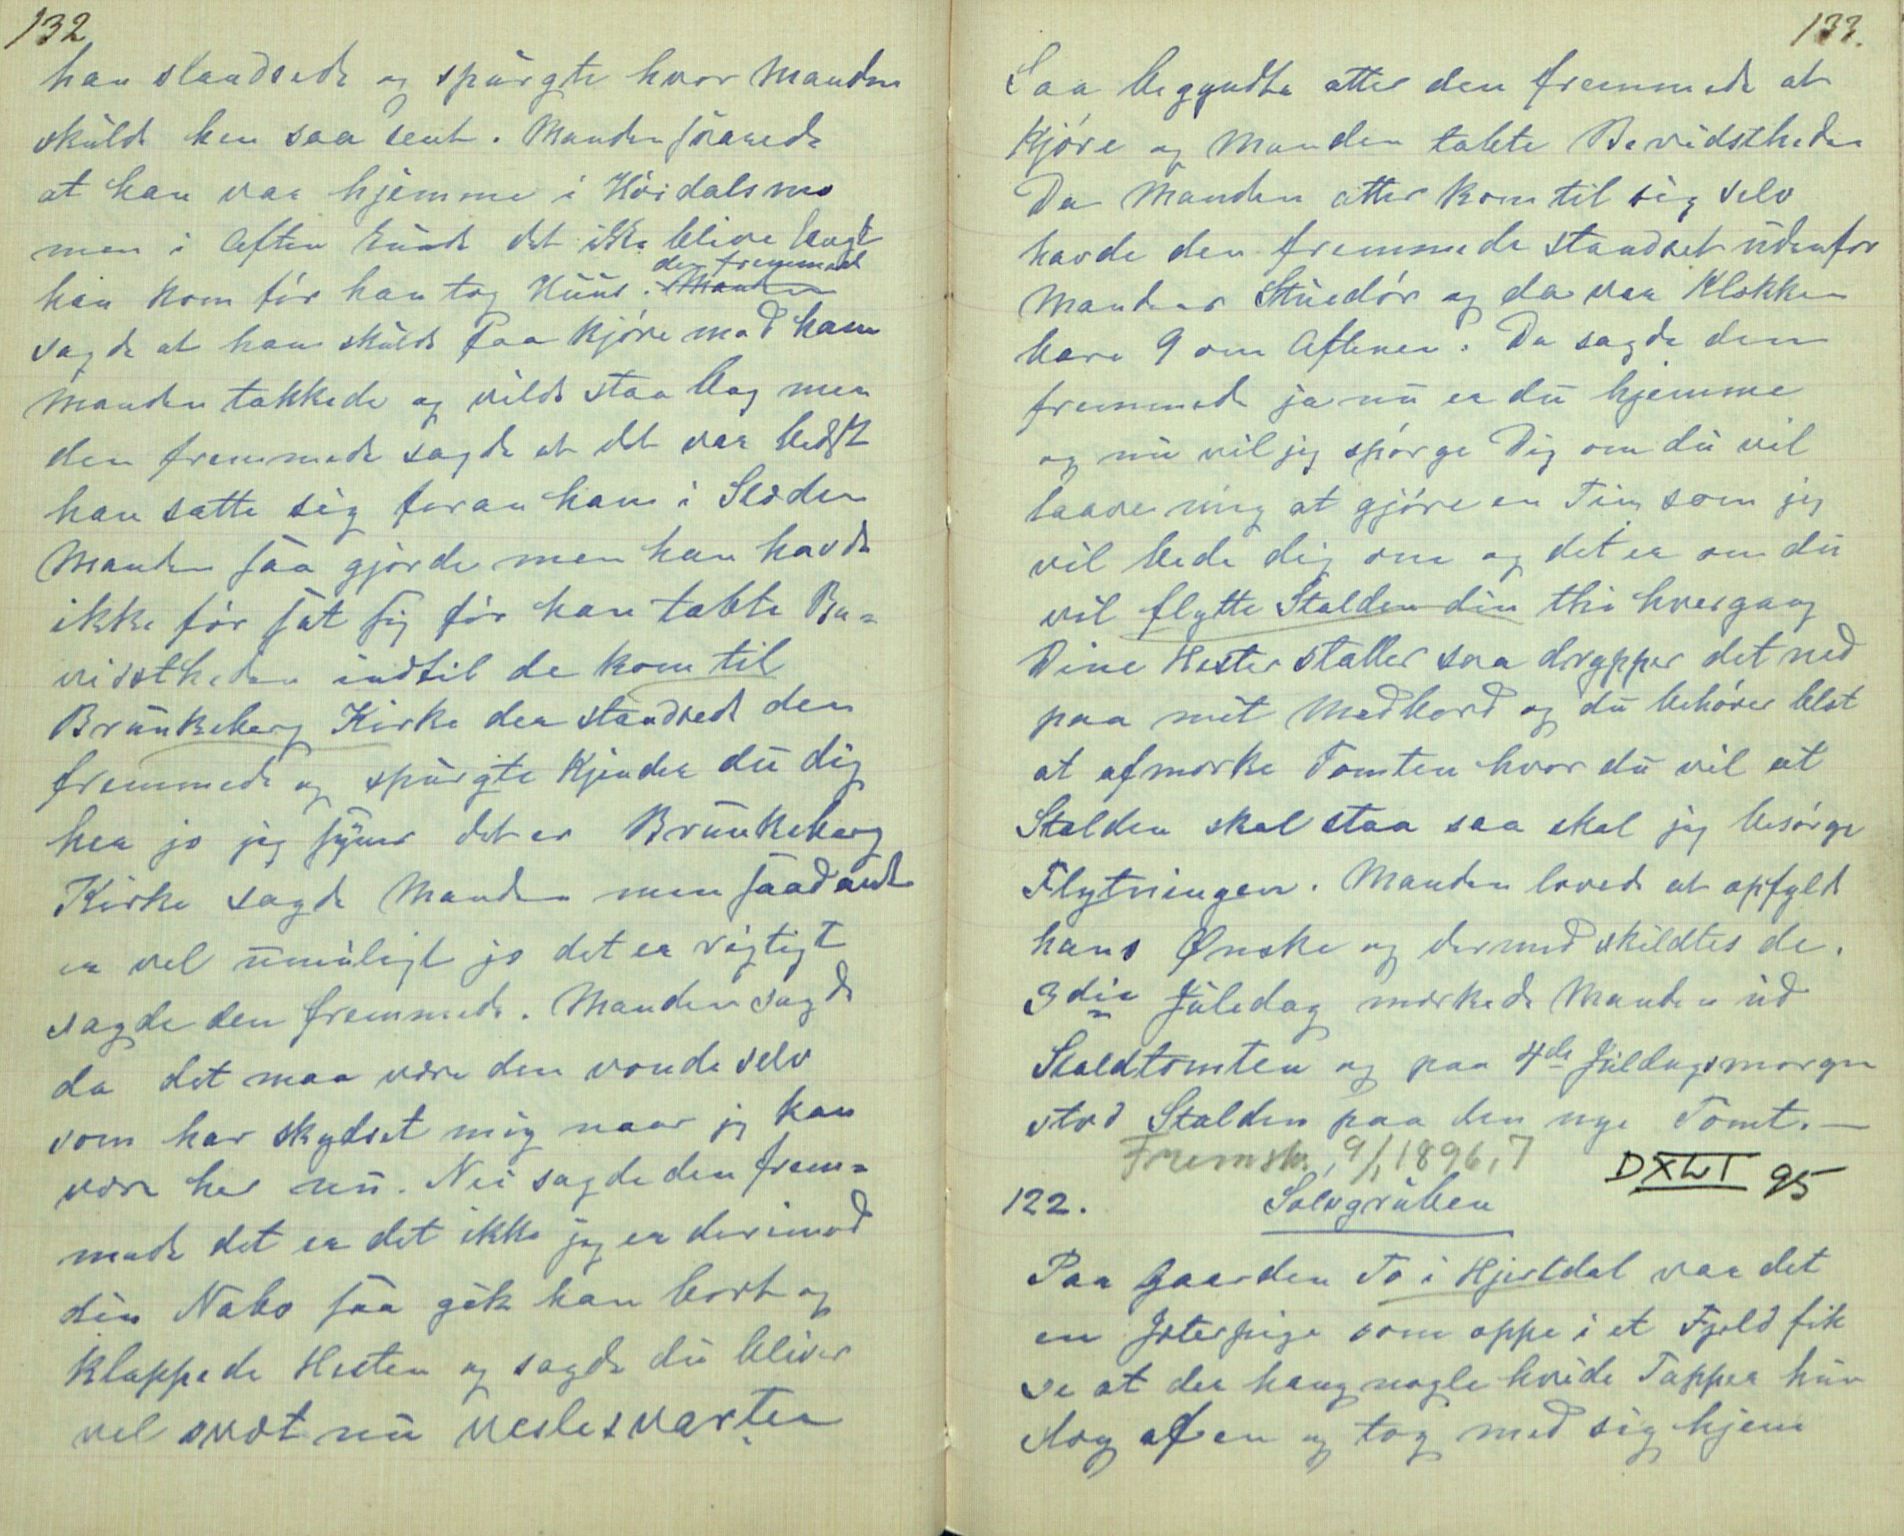 132
han standsede og spurgte hvor Manden
skulde hen saa sent. Manden svarede
at han var hjemme i Høidalsmo
men i Aften kunde det ikke blive langt
den fremmede
han kom før han tog Huus. Manden
sagde at han skulde faa kjøre med ham
Manden takkede og vilde staa bag men
den fremmede sagde at det var bedst
han satte sig foran ham i Slæden
Manden saa gjorde men han havde
ikke før sat sig før han tabte Be=
vidstheden indtil de kom til
Brunkeberg Kirke der standsede den
fremmede og spurgte Kjender du dig
her jo jeg synes det er Brunkeberg
Kirke sagde Manden men saadant
er vel umuligt jo det er rigtigt
sagde den fremmede. Manden sagde
da det maa være den vonde selv
som har skydset mig naar jeg kan
være her nu. Nei sagde den frem=
mede det er det ikke jeg er derimod
din Nabo saa gik han bort og
klappede Hesten og sagde du bliver
vel svet nu veslesvarten
133.
Saa begyndte atter den fremmede at
kjøre og Manden tabte Bevidstheden
Da Manden atter kom til sig selv
havde den fremmede standset udenfor
Mandens Stuedør og da var Klokken
bare 9 om Aftenen. Da sagde den
fremmede ja nu er du hjemme
og nu vil jeg spørge Dig om du vil
laave mig at gjøre en Ting som jeg
vil bede dig om og det er om du
vil flytte Stalden din thi hvergang
Dine Hester staller saa drypper det ned
paa mit Madbord og du behøver blot
at afmerke Tomten hvor du vil at
Stalden skal staa saa skal jeg besørge
Flytningen. Manden lovede at opfylde
hans Ønske og dermed skildtes de.
3die Juledag merkede Manden ud
Staldtomten og paa 4de Juldagsmorgen
stod Stalden paa den nye Tomt. —
Fremsk. 9/1 1896, 7
DXLI 95
122. Sølvgruben
Paa Gaarden To i Hjertdal var det
en Jeterpige som oppe i et Fjeld fik
se at der hang nogle hvide Tapper hun
slog af en og tog med sig hjem